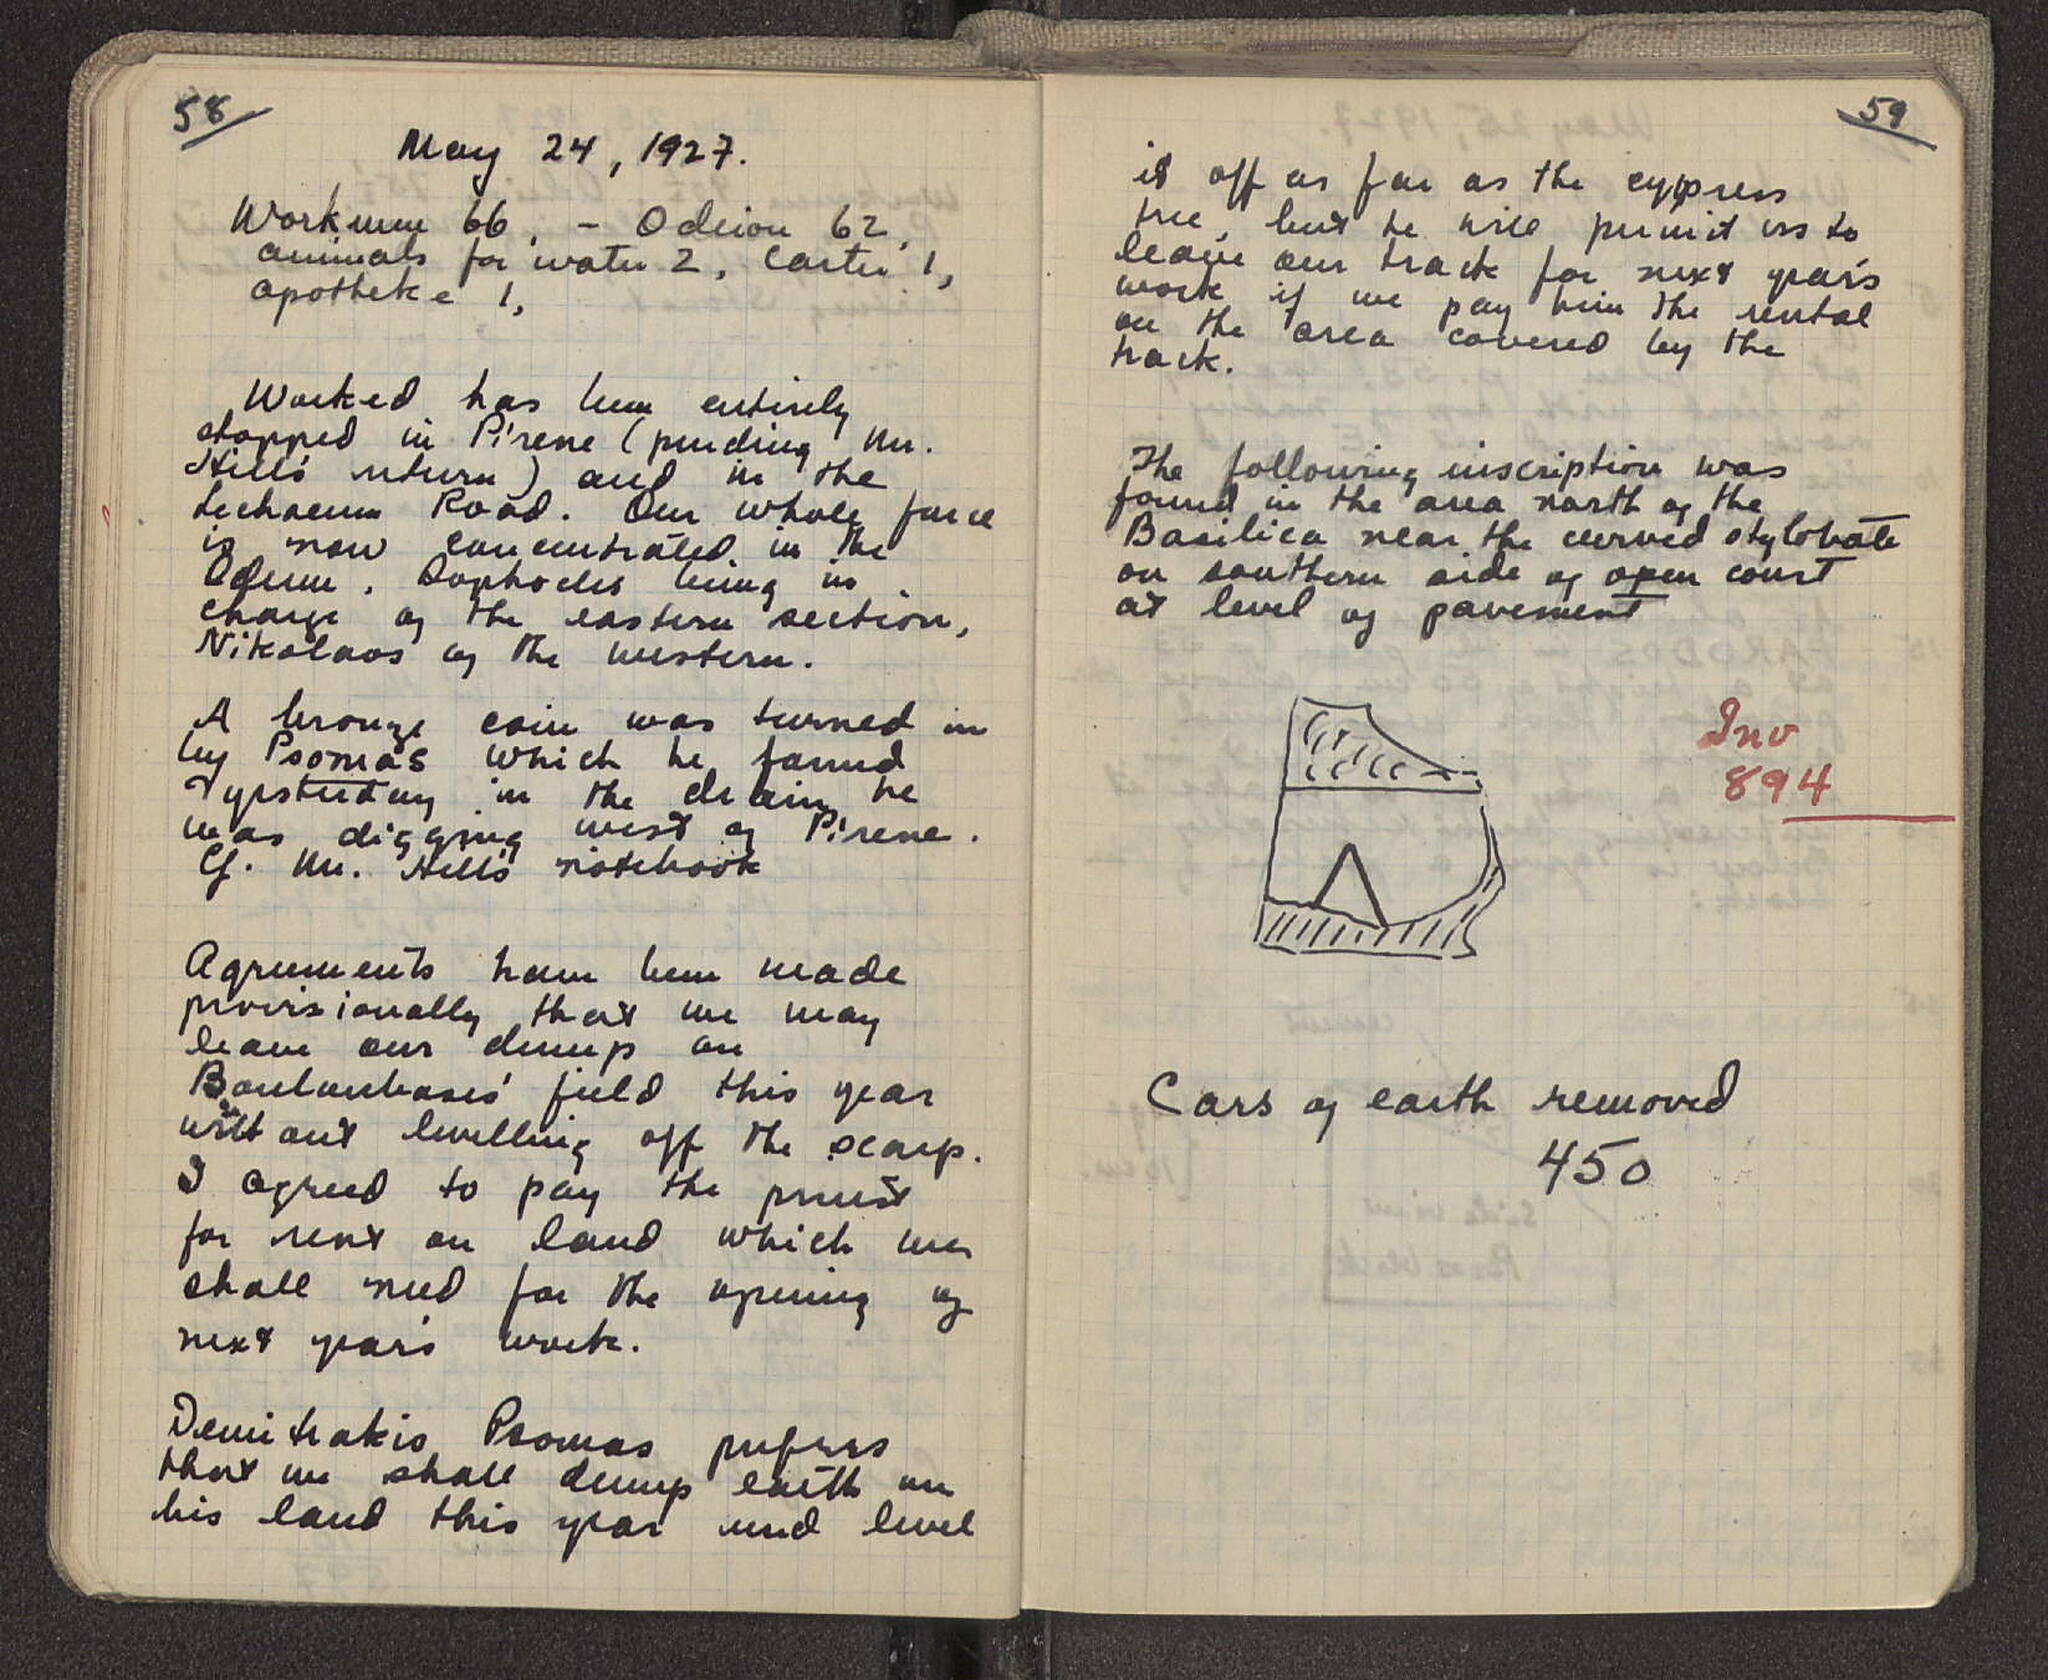 58
May 24, 1927.
Workmen 66, - Odeion 62,
animals for water 2, Carter 1,
apotheke 1,
Worked has been entirely
stopped in Pirene (pending Mr.
Hill's return) and in the
Lechaeum Road. Our whole force
is now concentrated in the
Odeum, Sophocles being in
charge of the eastern section,
Nikolaos of the western.
A bronze coin was turned in
by Psomas which he found
yesterday in the drain he
was digging west of Pirene.
Cf. Mr. Hill's notebook
Agreements have been made
provisionally that we may
leave our dump on
field this year
without levelling off the scarp.
I agreed to pay the priest
for rent on land which we
shall need for the opening of
next year's work.
Demitrakis Psomas prefers
that we shall dump earth on
his land this year and level
59
it off as far as the cypress
tree, but he will permit us to
leave our track for next year's
work if we pay him the rental
on the area covered by the
track.
The following inscription was
found in the area north of the
Basilica near the curved stylobate
on southern side of open court
at level of pavement
Inv
894
Λ
Cars of earth removed
450